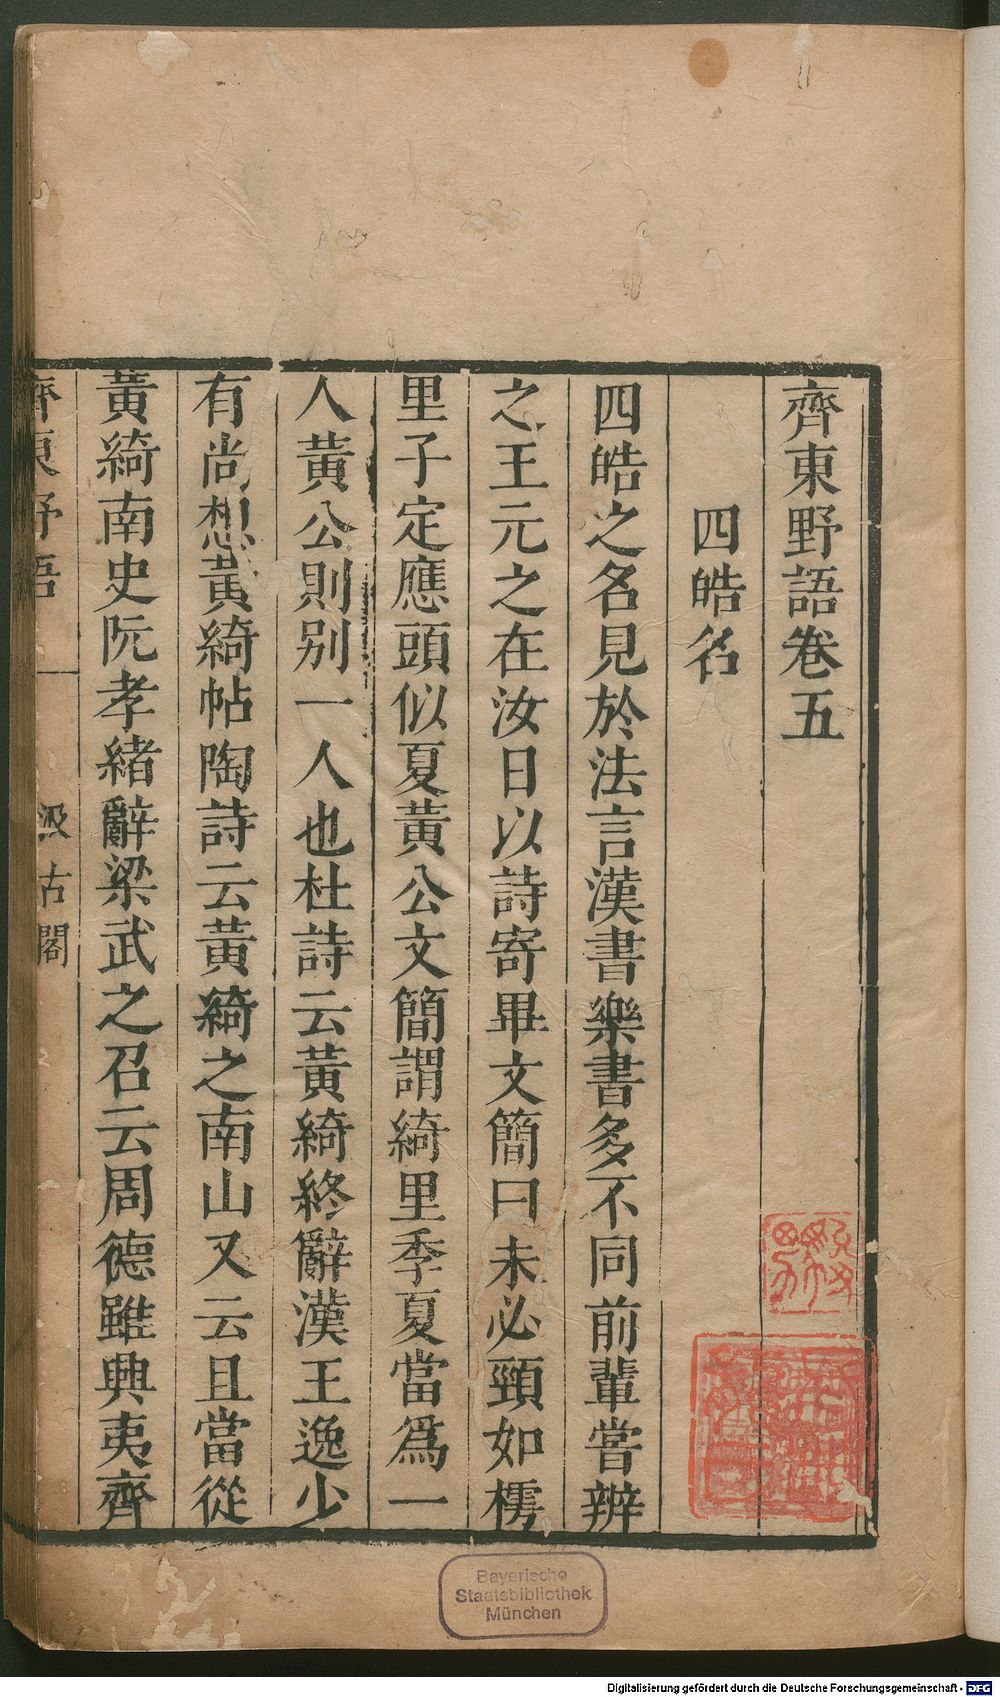 齊東野語卷五
四皓名
四皓之名見於法言漢書樂書多不同前輩嘗辨
之王元之在汝日以詩寄畢文簡曰未必頸如樗
里子定應頭似夏黃公文簡謂綺里季夏當爲一
人黃公則别一人也杜詩云黃綺終辭漢王逸少
有尚想黃綺帖陶詩云黃綺之南山又云且當從
黃綺南史阮孝緒辭梁武之召云周德雖興夷齊
齊東野語
汲古閣
Bayerische
Staatsbibliothek
München
Digitalisierung gefördert durch die Deutsche Forschungsgemeinschaft - DFG